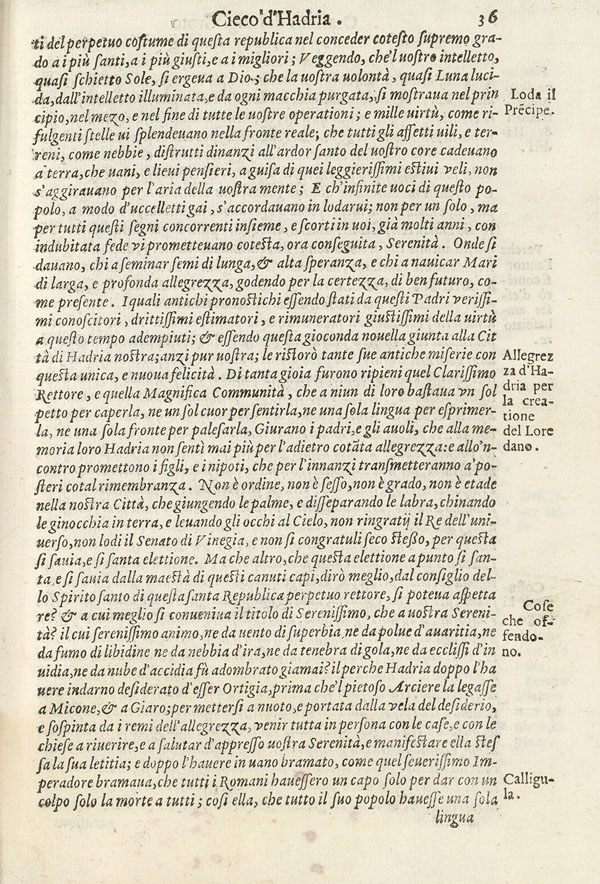 Cieco d'Hadria. 36
ti del perpetuo costume di questa republica nel conceder cotesto supremo gra-
do a i più santi, a i più giusti, e a i migliori; Veggendo, che'l uostro intelletto,
quasi schietto Sole, si ergeua a Dio; che la uostra uolontà, quasi Luna luci-
da, dall'intelletto illuminata, e da ogni macchia purgata, si mostraua nel prin
cipio, nel mezo, e nel fine di tutte le uostre operationi; e mille uirtù, come ri-
fulgenti stelle ui splendeuano nella fronte reale; che tutti gli affetti uili, e ter-
reni, come nebbie, distrutti dinanzi all'ardor santo del uostro core cadeuano
a terra, che uani, e lieui pensieri, a guisa di quei leggierissimi estiui veli, non
s'aggirauano per l'aria della uostra mente; E ch'infinite uoci di questo po-
polo, a modo d'uccelletti gai, s'accordauano in lodarui; non per un solo, ma
per tutti questi segni concorrenti insieme, e scorti in uoi, già molti anni, con
indubitata fede vi prometteuano cotesta, ora conseguita, Serenità. Onde si
dauano, chi a seminar semi di lunga, & alta speranza, e chi a nauicar Mari
di larga, e profonda allegrezza, godendo per la certezza, di ben futuro, co-
me presente. I quali antichi pronostichi essendo stati da questi Padri verissi-
mi conoscitori, drittissimi estimatori, e rimuneratori giustissimi della uirtù
a questo tempo adempiuti; & essendo questa gioconda nouella giunta alla Cit
tà di Hadria nostra; anzi pur uostra; le ristorò tante sue antiche miserie con
questa unica, e nuoua felicità. Di tanta gioia furono ripieni quel Clarissimo
Rettore, e quella Magnifica Communità, che a niun di loro bastaua vn sol
petto per caperla, ne un sol cuor per sentirla, ne una sola lingua per esprimer-
la, ne una sola fronte per palesarla, Giurano i padri, e gli auoli, che alla me-
moria loro Hadria non sentì mai più per l'adietro cotāta allegrezza: e allo'n-
contro promettono i figli, e i nipoti, che per l'innanzi transmetteranno a'po-
steri cotal rimembranza. Non è ordine, non è sesso, non è grado, non è etade
nella nostra Città, che giungendo le palme, e disseparando le labra, chinando
le ginocchia in terra, e leuando gli occhi al Cielo, non ringratij il Re dell'uni-
uerso, non lodi il Senato di Vinegia, e non si congratuli seco stesso, per questa
sì sauia, e sì santa elettione. Ma che altro, che questa elettione a punto sì san-
ta, e sì sauia dalla maestà di questi canuti capi, dirò meglio, dal consiglio del-
lo Spirito santo di questa santa Republica perpetuo rettore, si poteua aspetta
re? & a cui meglio si conueniua il titolo di Serenissimo, che a uostra Sereni-
tà? il cui serenissimo animo, ne da uento di superbia, ne da polue d'auaritia, ne
da fumo di libidine ne da nebbia d'ira, ne da tenebra di gola, ne da ecclissi d'in
uidia, ne da nube d'accidia fù adombrato giamai? il perche Hadria doppo l'ha
uere indarno desiderato d'esser Ortigia, prima che'l pietoso Arciere la legasse
a Micone, & a Giaro; per mettersi a nuoto, e portata dalla vela del desiderio,
e sospinta da i remi dell'allegrezza, venir tutta in persona con le case, e con le
chiese a riuerire, e a salutar d'appresso uostra Serenità, e manifestare ella stes
sa la sua letitia; e doppo l'hauere in uano bramato, come quel seuerissimo Im-
peradore bramaua, che tutti i Romani hauessero un capo solo per dar con un
colpo solo la morte a tutti; così ella, che tutto il suo popolo hauesse una sola
lingua
Loda il
Prēcipe.
Allegrez
za d'Ha-
dria per
la crea-
tione
del Lore
dano.
Cose
che of-
fendo-
no.
Calligu-
la.